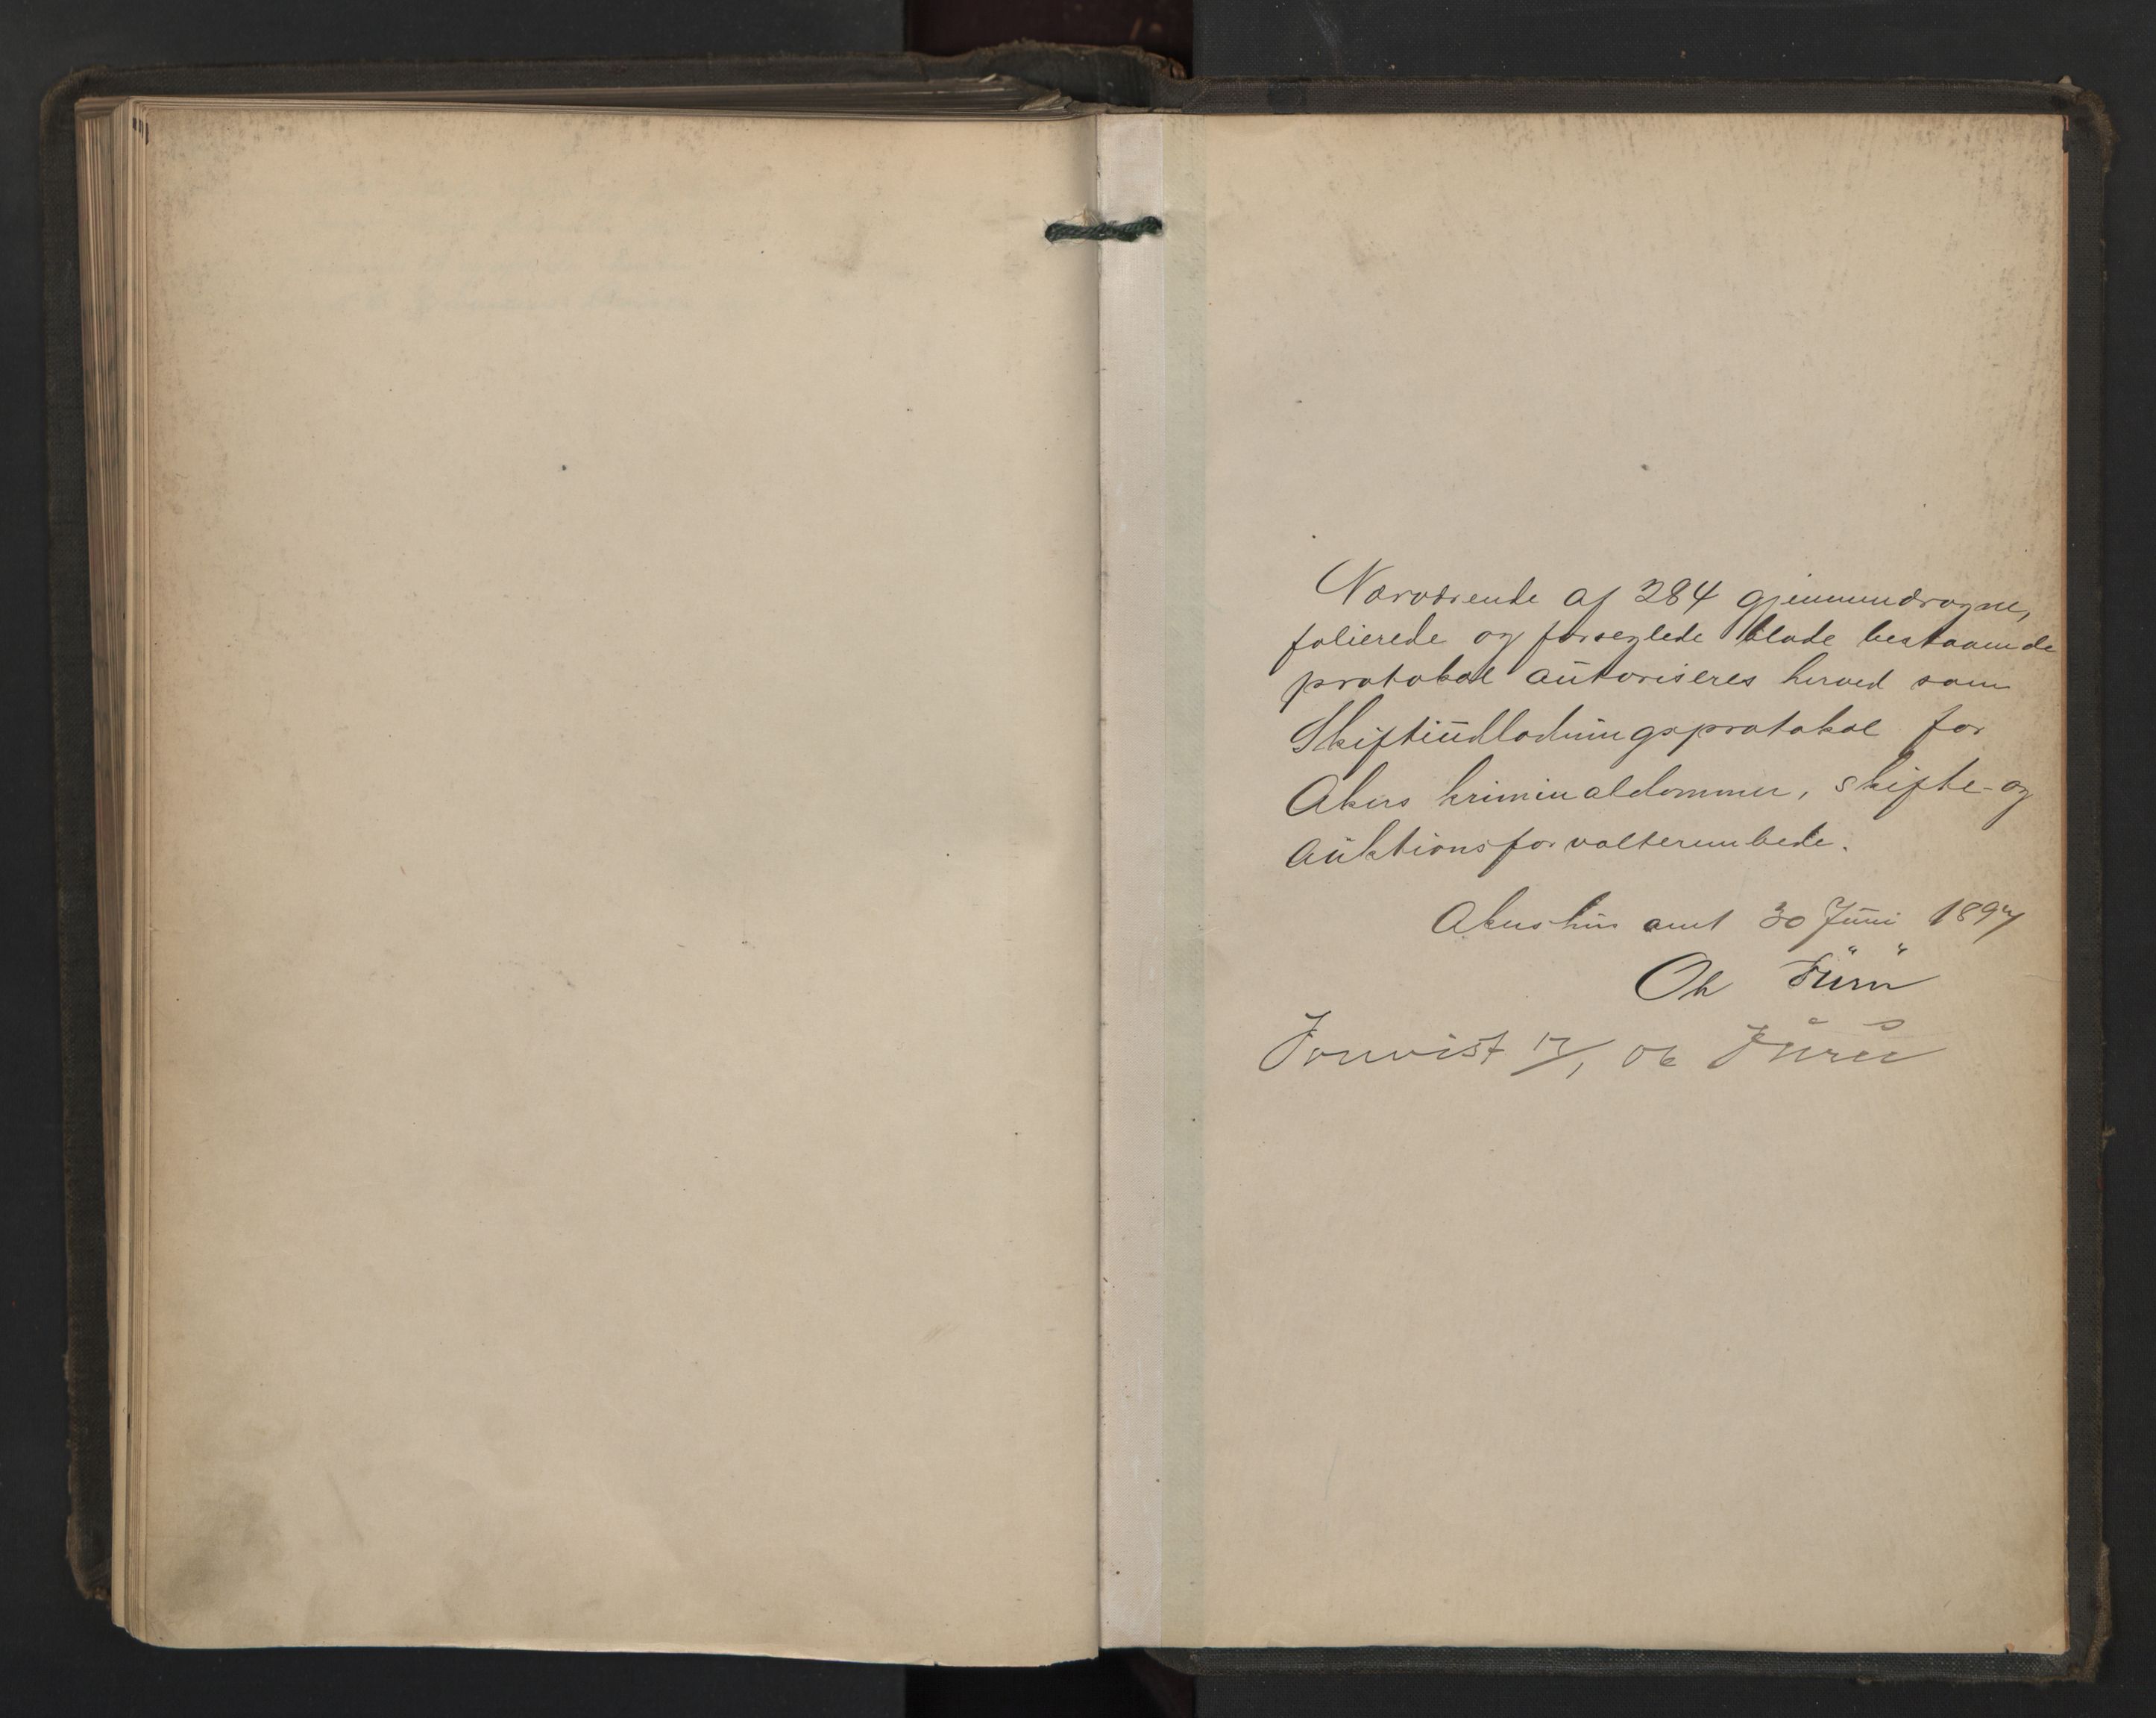 Nærværende af 284 gjennemdragne,
folierede og forseglede blade bestaaende
protokol autoriseres herved som
Skifteudlodningsprotokol for
Akers kriminaldommer, skifte- og
auktionsforvalterembede.
Akershus amt 30 Juni 1897
Furu
Forevist Furu